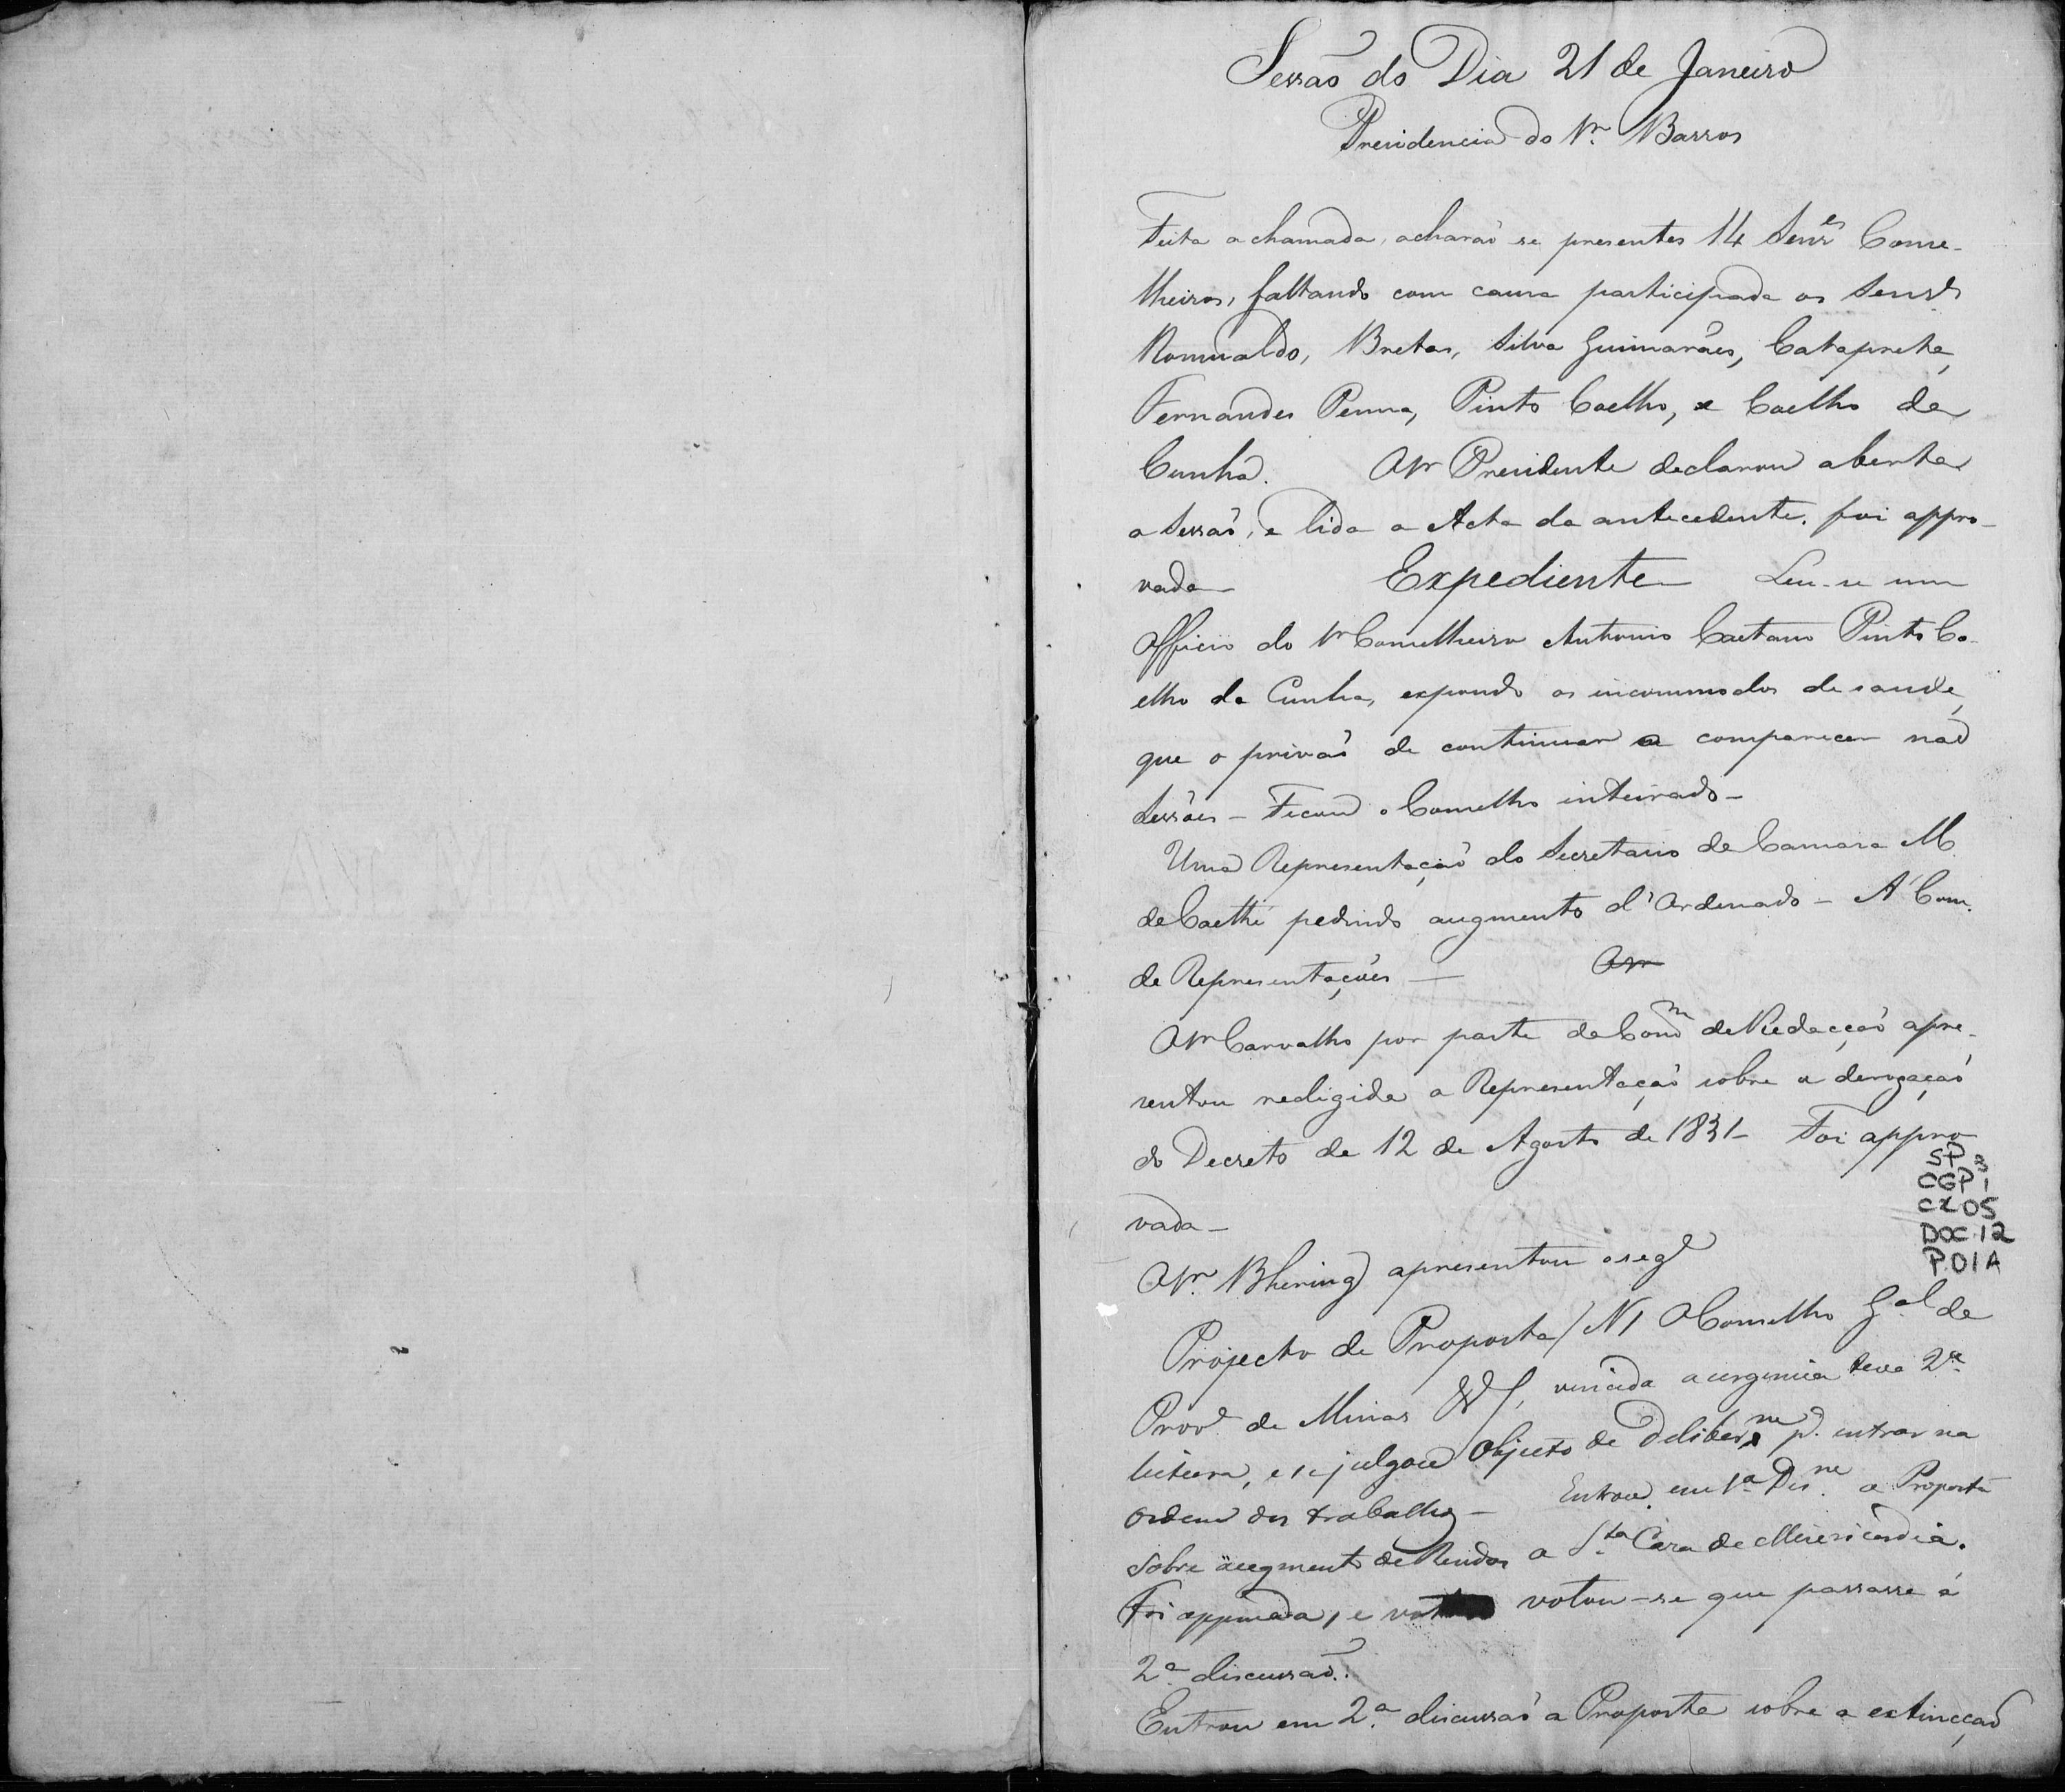 Sessão do Dia 21 de Janeiro
Presidencia do Sr. Barros
Feita a chamada, acharaõ se presentes 14 Senr.es Conse-
lheiros, faltando com causa participada os Senr.es
Romualdo, Bretas, Silva Guimarães, Catapreta,
Fernandes Penna, Pinto Coelho, e Coelho da
Cunha. O Sr Presidente declarou aberta
a Sessaõ, e lida a Acta da antecedente, foi appro-
vada— Expediente— Leu-se um
Officio do Sr Conselheiro Antonio Caetano Pinto Co-
elho da Cunha, expondo os incommodos de saude,
que o privaõ de continuar a comparecer nas
Sessões— Ficou o Conselho inteirado—
Uma Representaçaõ do Secretario da Camara M.
de Caethé pedindo augmento d'Ordenado— A' Com.
de Representações— O Sr
O Sr Carvalho por parte da Comm de Redacçaõ apre-
sentou redigida a Representaçaõ sobre a derogaçaõ
do Decreto de 12 de Agosto de 1831— Foi appro
vada—
SP 3
CGP 1
CX 05
DOC. 12
P. 01A
O Sr. Bhering apresentou o seg.e
Projecto de Proposta / N 1 O Conselho G.al de
Prov.a de Minas &/, vencida a urgencia teve 2.a
leitura, e se julgou Objecto de Deliber.m p.a entrar na
ordem dos trabalhos— Entrou em 1.a Dis.m a Proposta
sobre augmento de Rendas a S.ta Casa de Misericordia.
Foi apoiada, e votou-se que passasse á
2.a discussaõ.
Entrou em 2.a discussaõ a Proposta sobre a extincçaõ